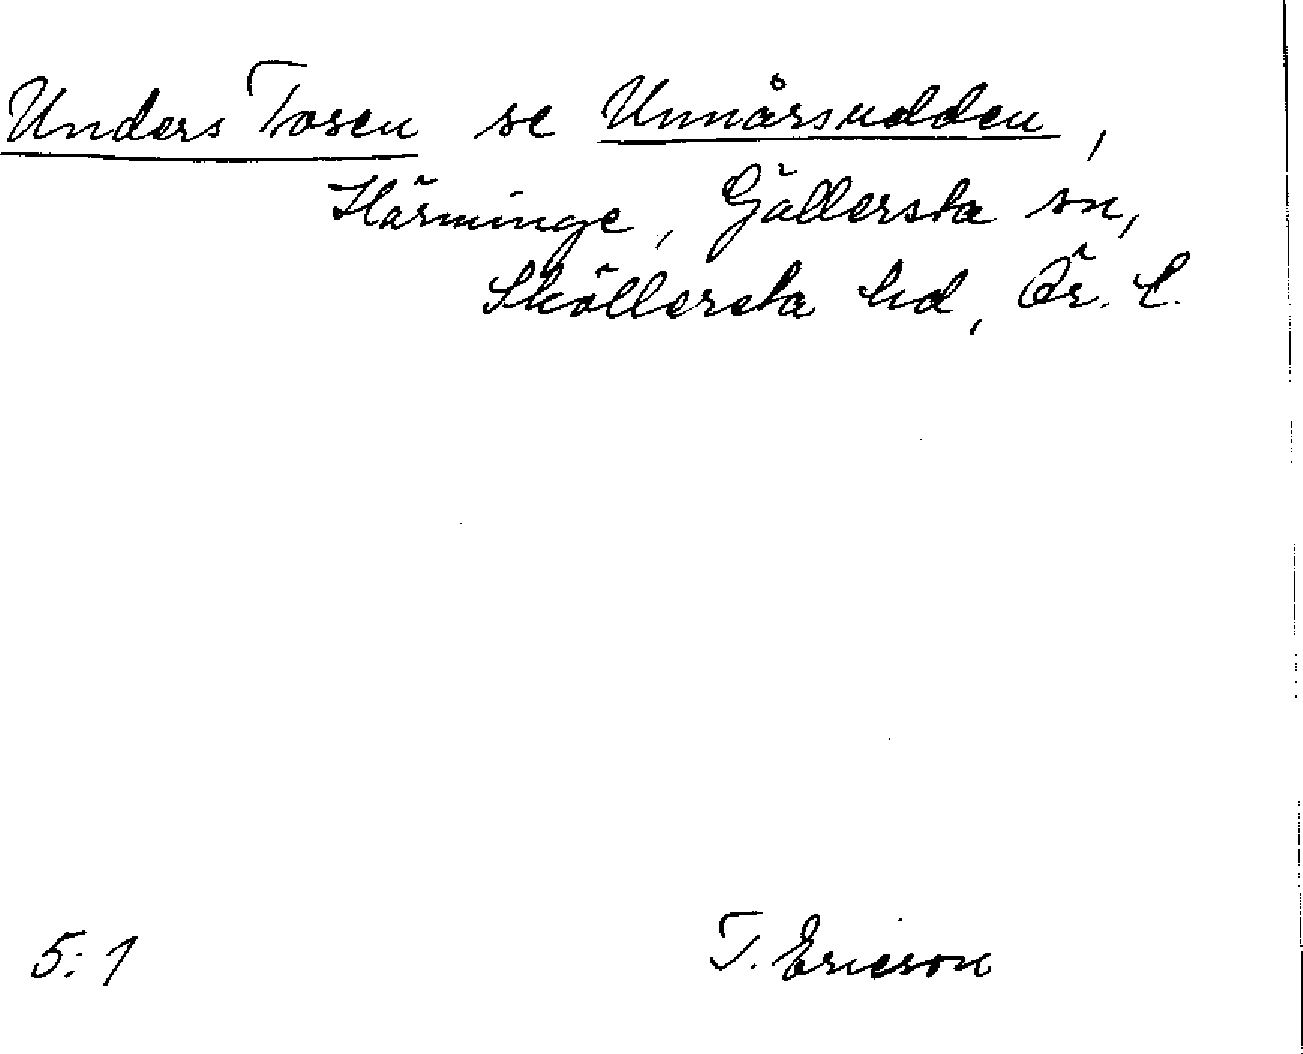 Unders Tosen se Unnårsudden,
Härminge, Gällersta sn,
Sköllersta hd, Ör. l.
5:1 T. Ericson